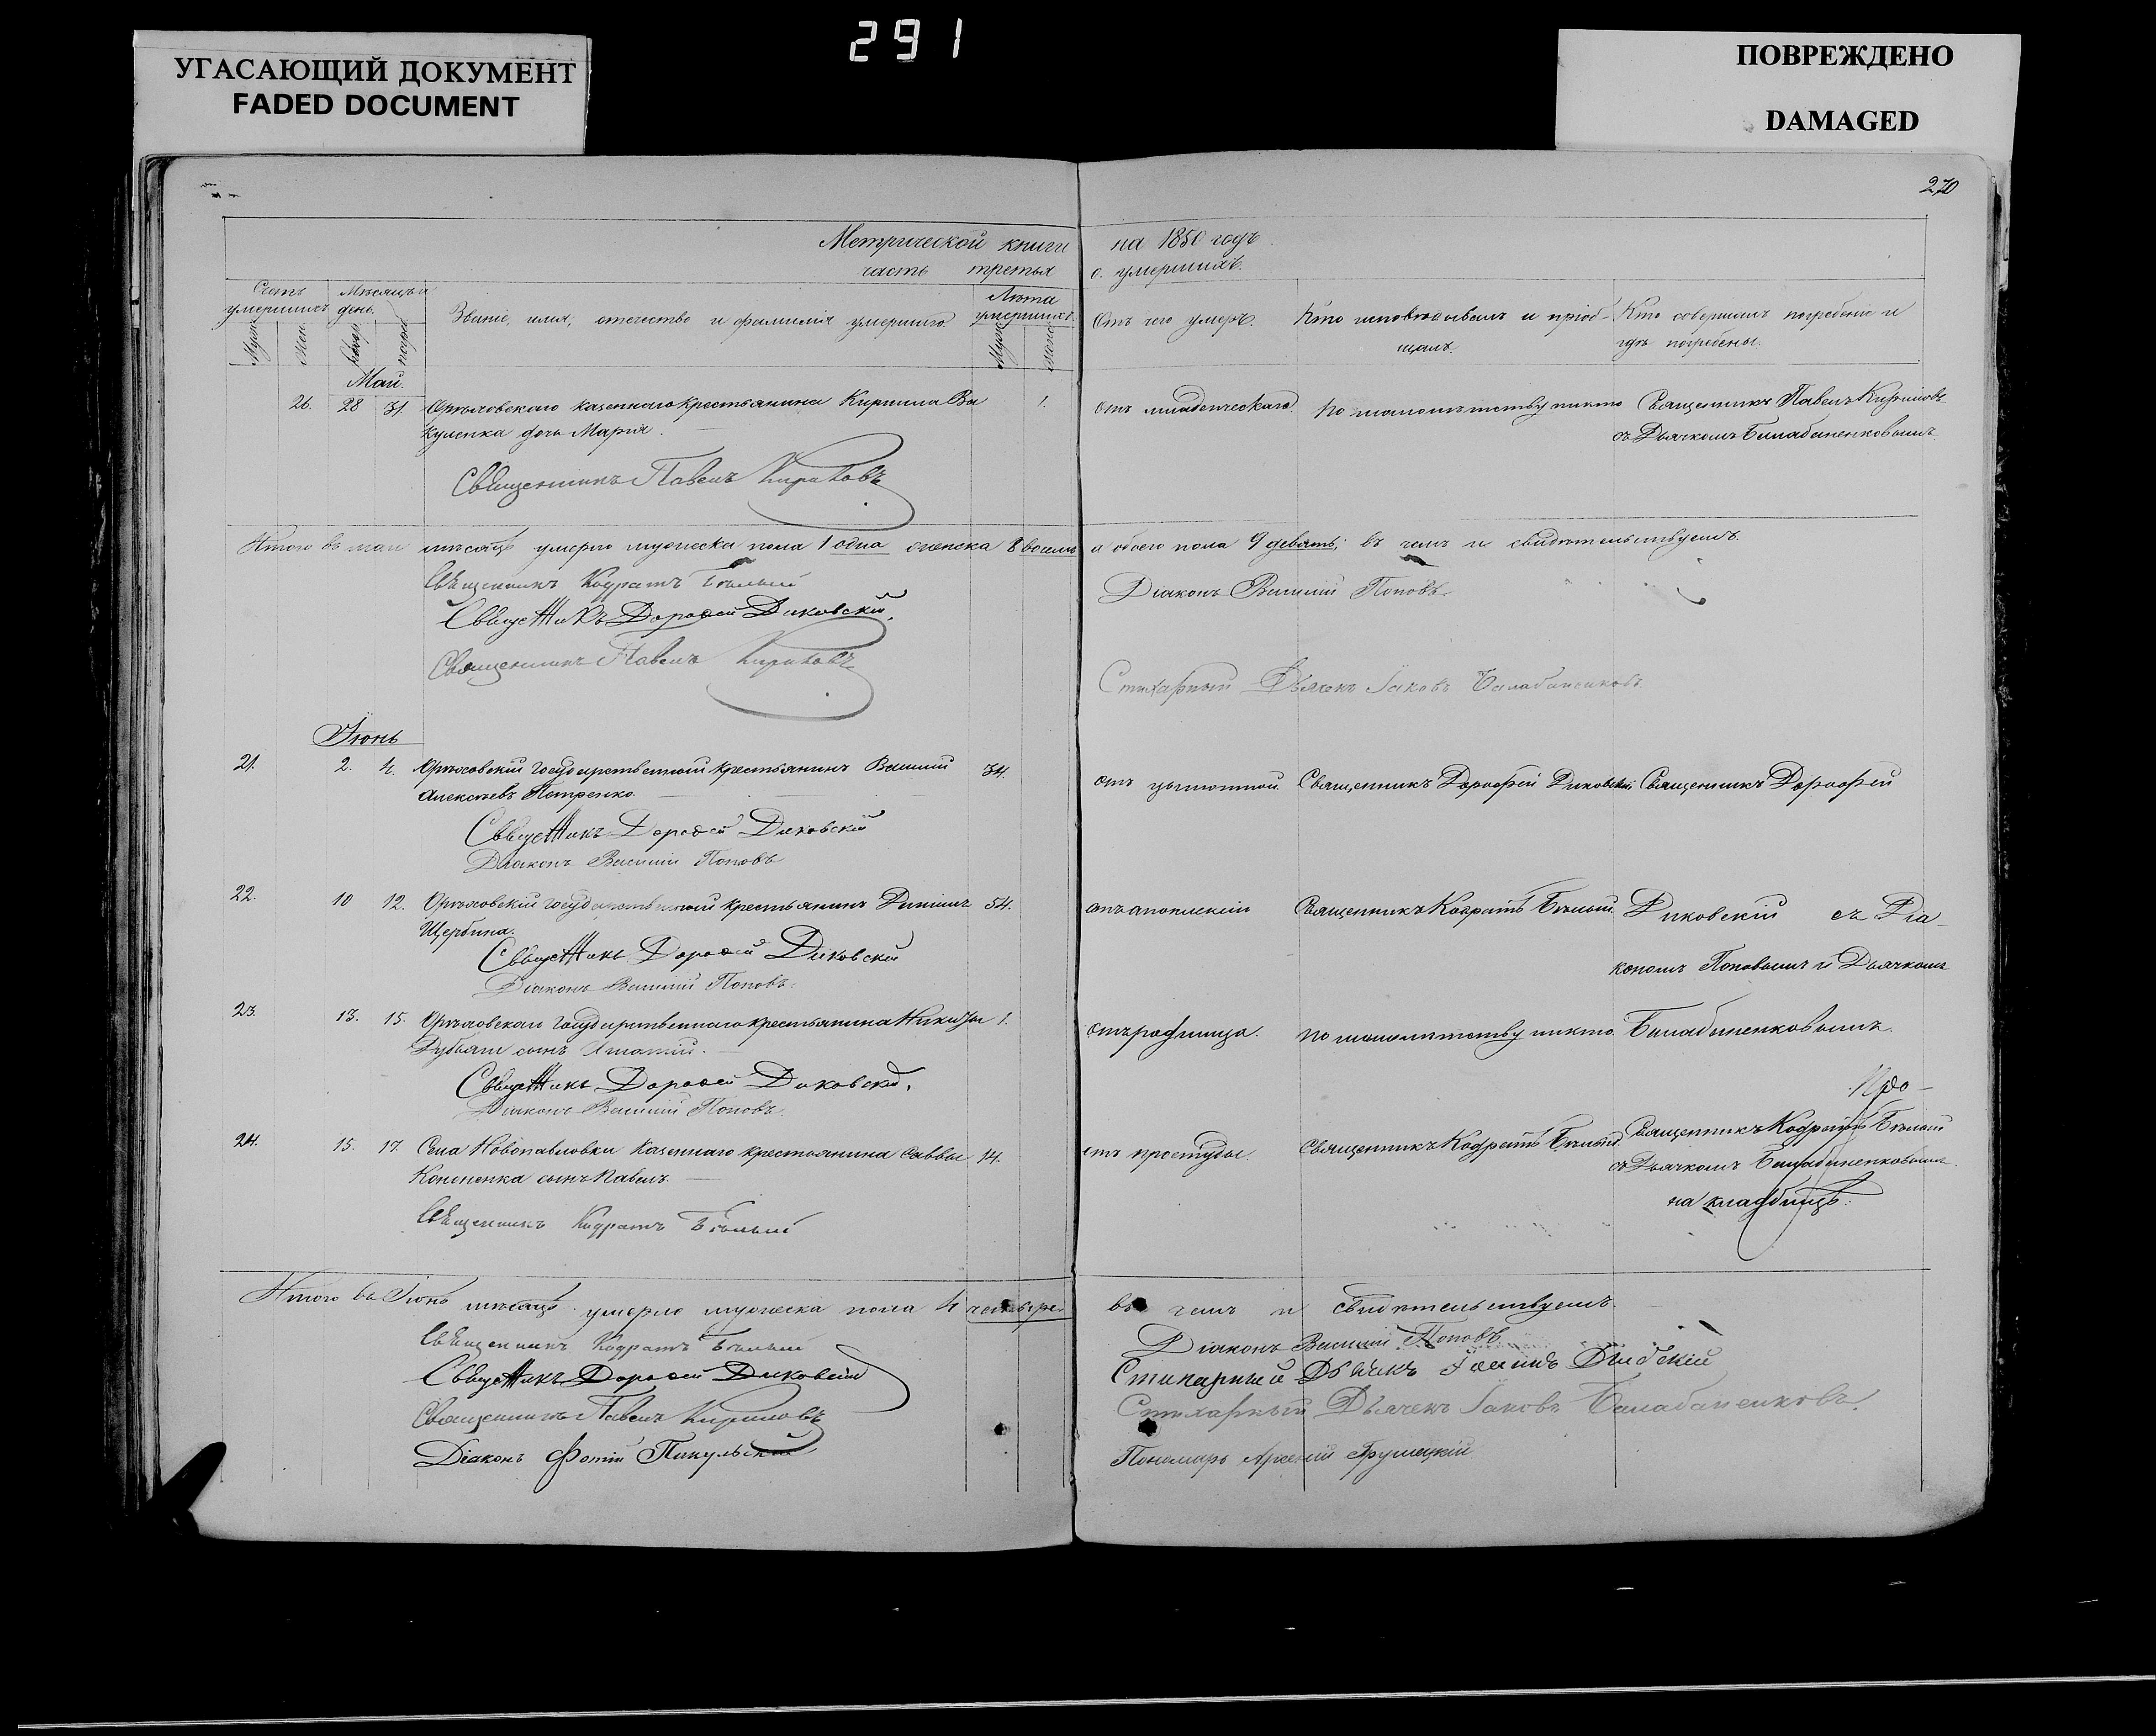 291
УГАСАЮЩИЙ ДОКУМЕНТ
FADED DOCUMENT
ПОВРЕЖДЕНО
DAMAGED
270
Метрической книги на 1850 годъ
часть третья о умершихъ.
Счетъ умершихъ
Муж.
Жен.
Мѣсяцъ и день.
Лѣта умершихъ
Званіе, имя, отечество и фамилія умершаго.
Отъ чего умеръ.
Кто исповѣдывалъ и пріобщалъ.
Кто совершалъ погребеніе и
гдѣ погребены.
Май.
26. 28 31. Орѣховскаго казеннаго крестьянина Кирилла Ва 1. отъ младенческаго. по малолѣтству никто Священникъ Павелъ Кириловъ
куленка дочь Марія. съ Дьячкомъ Балабаненковымъ
Священникъ Павелъ Кириловъ
Итого въ маи мѣсяцѣ умерло мужеска пола 1 одна женска 8 восемь а обоего пола 9 девять; въ чемъ и свидѣтельствуемъ.
Священникъ Кодратъ Бѣлый
Діаконъ Василій Поповъ
Священникъ Дорофей Диковскій.
Священникъ Павелъ Кириловъ
Стихарный Дьячекъ Іаковъ Балабаненковъ.
Іюнь
21. 2. 4. Орѣховскій государственный крестьянинъ Василій 34. отъ цынготной. Священникъ Дорофей Диковскій Священникъ Дорофей
Алексѣевъ Петренко.
Священникъ Дорофей Диковскій
Діаконъ Василій Поповъ
22. 10 12. Орѣховскій государственный крестьянинъ Даніилъ 54. отъ апоплексіи Священникъ Кодратъ Бѣлый. Диковскій съ Діа-
Щербина.
Священникъ Дорофей Диковскій
кономъ Поповымъ и Дьячкомъ
Діаконъ Василій Поповъ.
23. 13. 15. Орѣховскаго государственнаго крестьянина Никиты 1. отъ родимца. по малолѣтству никто. Балабаненковымъ.
сынъ
Священникъ Дорофей Диковскій.
Діаконъ Василій Поповъ.
24. 15. 17. Села Новопавловки казеннаго крестьянина Саввы 14. отъ простуды. Священникъ Кодратъ Бѣлый. Священникъ Кодратъ Бѣлый
Кононенка сынъ Павелъ. съ Дьячкомъ Балабаненковымъ.
на кладбищѣ.
Священникъ Кодратъ Бѣлый
Итого въ Іюнѣ мѣсяцѣ умерло мужеска пола 4 четыре въ чемъ и свидѣтельствуемъ.
Священникъ Кодратъ Бѣлый
Діаконъ Василій Поповъ
Священникъ Дорофей Диковскій
Стихарный Дьячекъ
Священникъ Павелъ Кириловъ
Стихарный Дьячекъ Іаковъ Балабаненковъ.
Діаконъ Фотій Пикульскій
Пономарь Арсеній